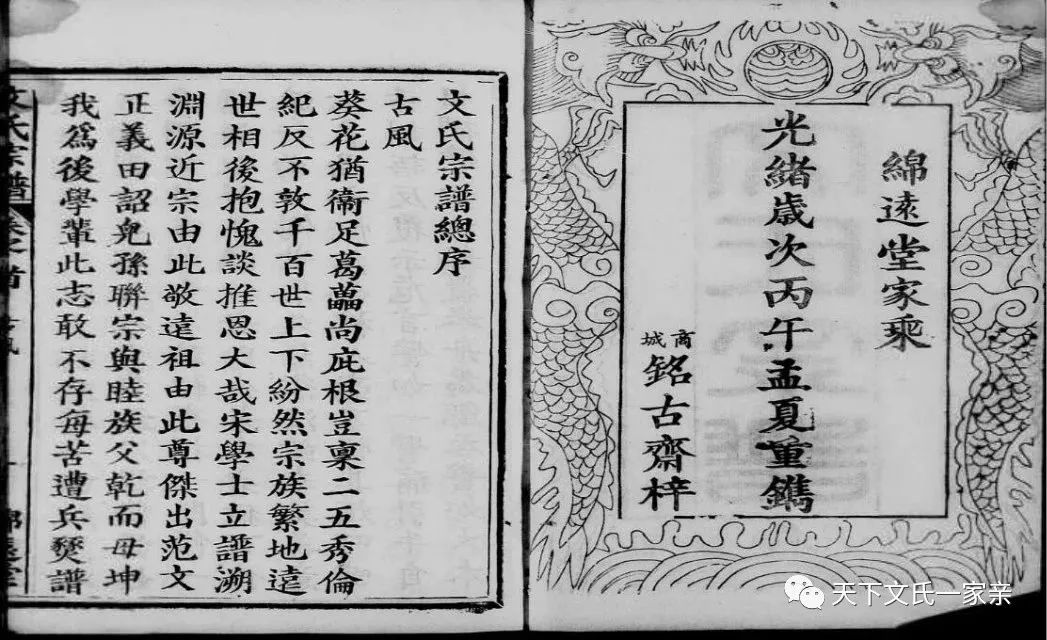 綿遠堂家乘
光緒歲次丙午孟夏重鐫
商城
銘古齋梓
文氏宗譜總序
古風
葵花猶衞足葛藟尚庇根豈稟二五秀倫
紀反不敦千百世上下紛然宗族繁地遠
世相後抱愧談推恩大哉宋學士立譜溯
淵源近宗由此敬遠祖由此尊傑出范文
正義田詔兒孫聯宗與睦族父乾而母坤
我爲後學輩此志敢不存每苦遭兵燹譜
文氏宗譜
天下文氏一家亲